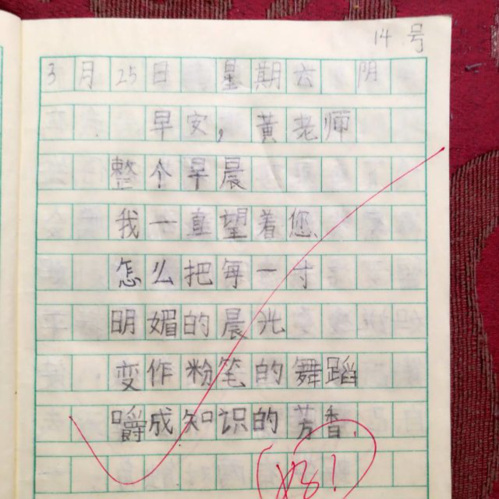 14号
3月25日 星期六 阴
早安，黄老师
整个早晨
我一直望着您
怎么把每一寸
明媚的晨光
变作粉笔的舞蹈
嚼成知识的芳香.
好！